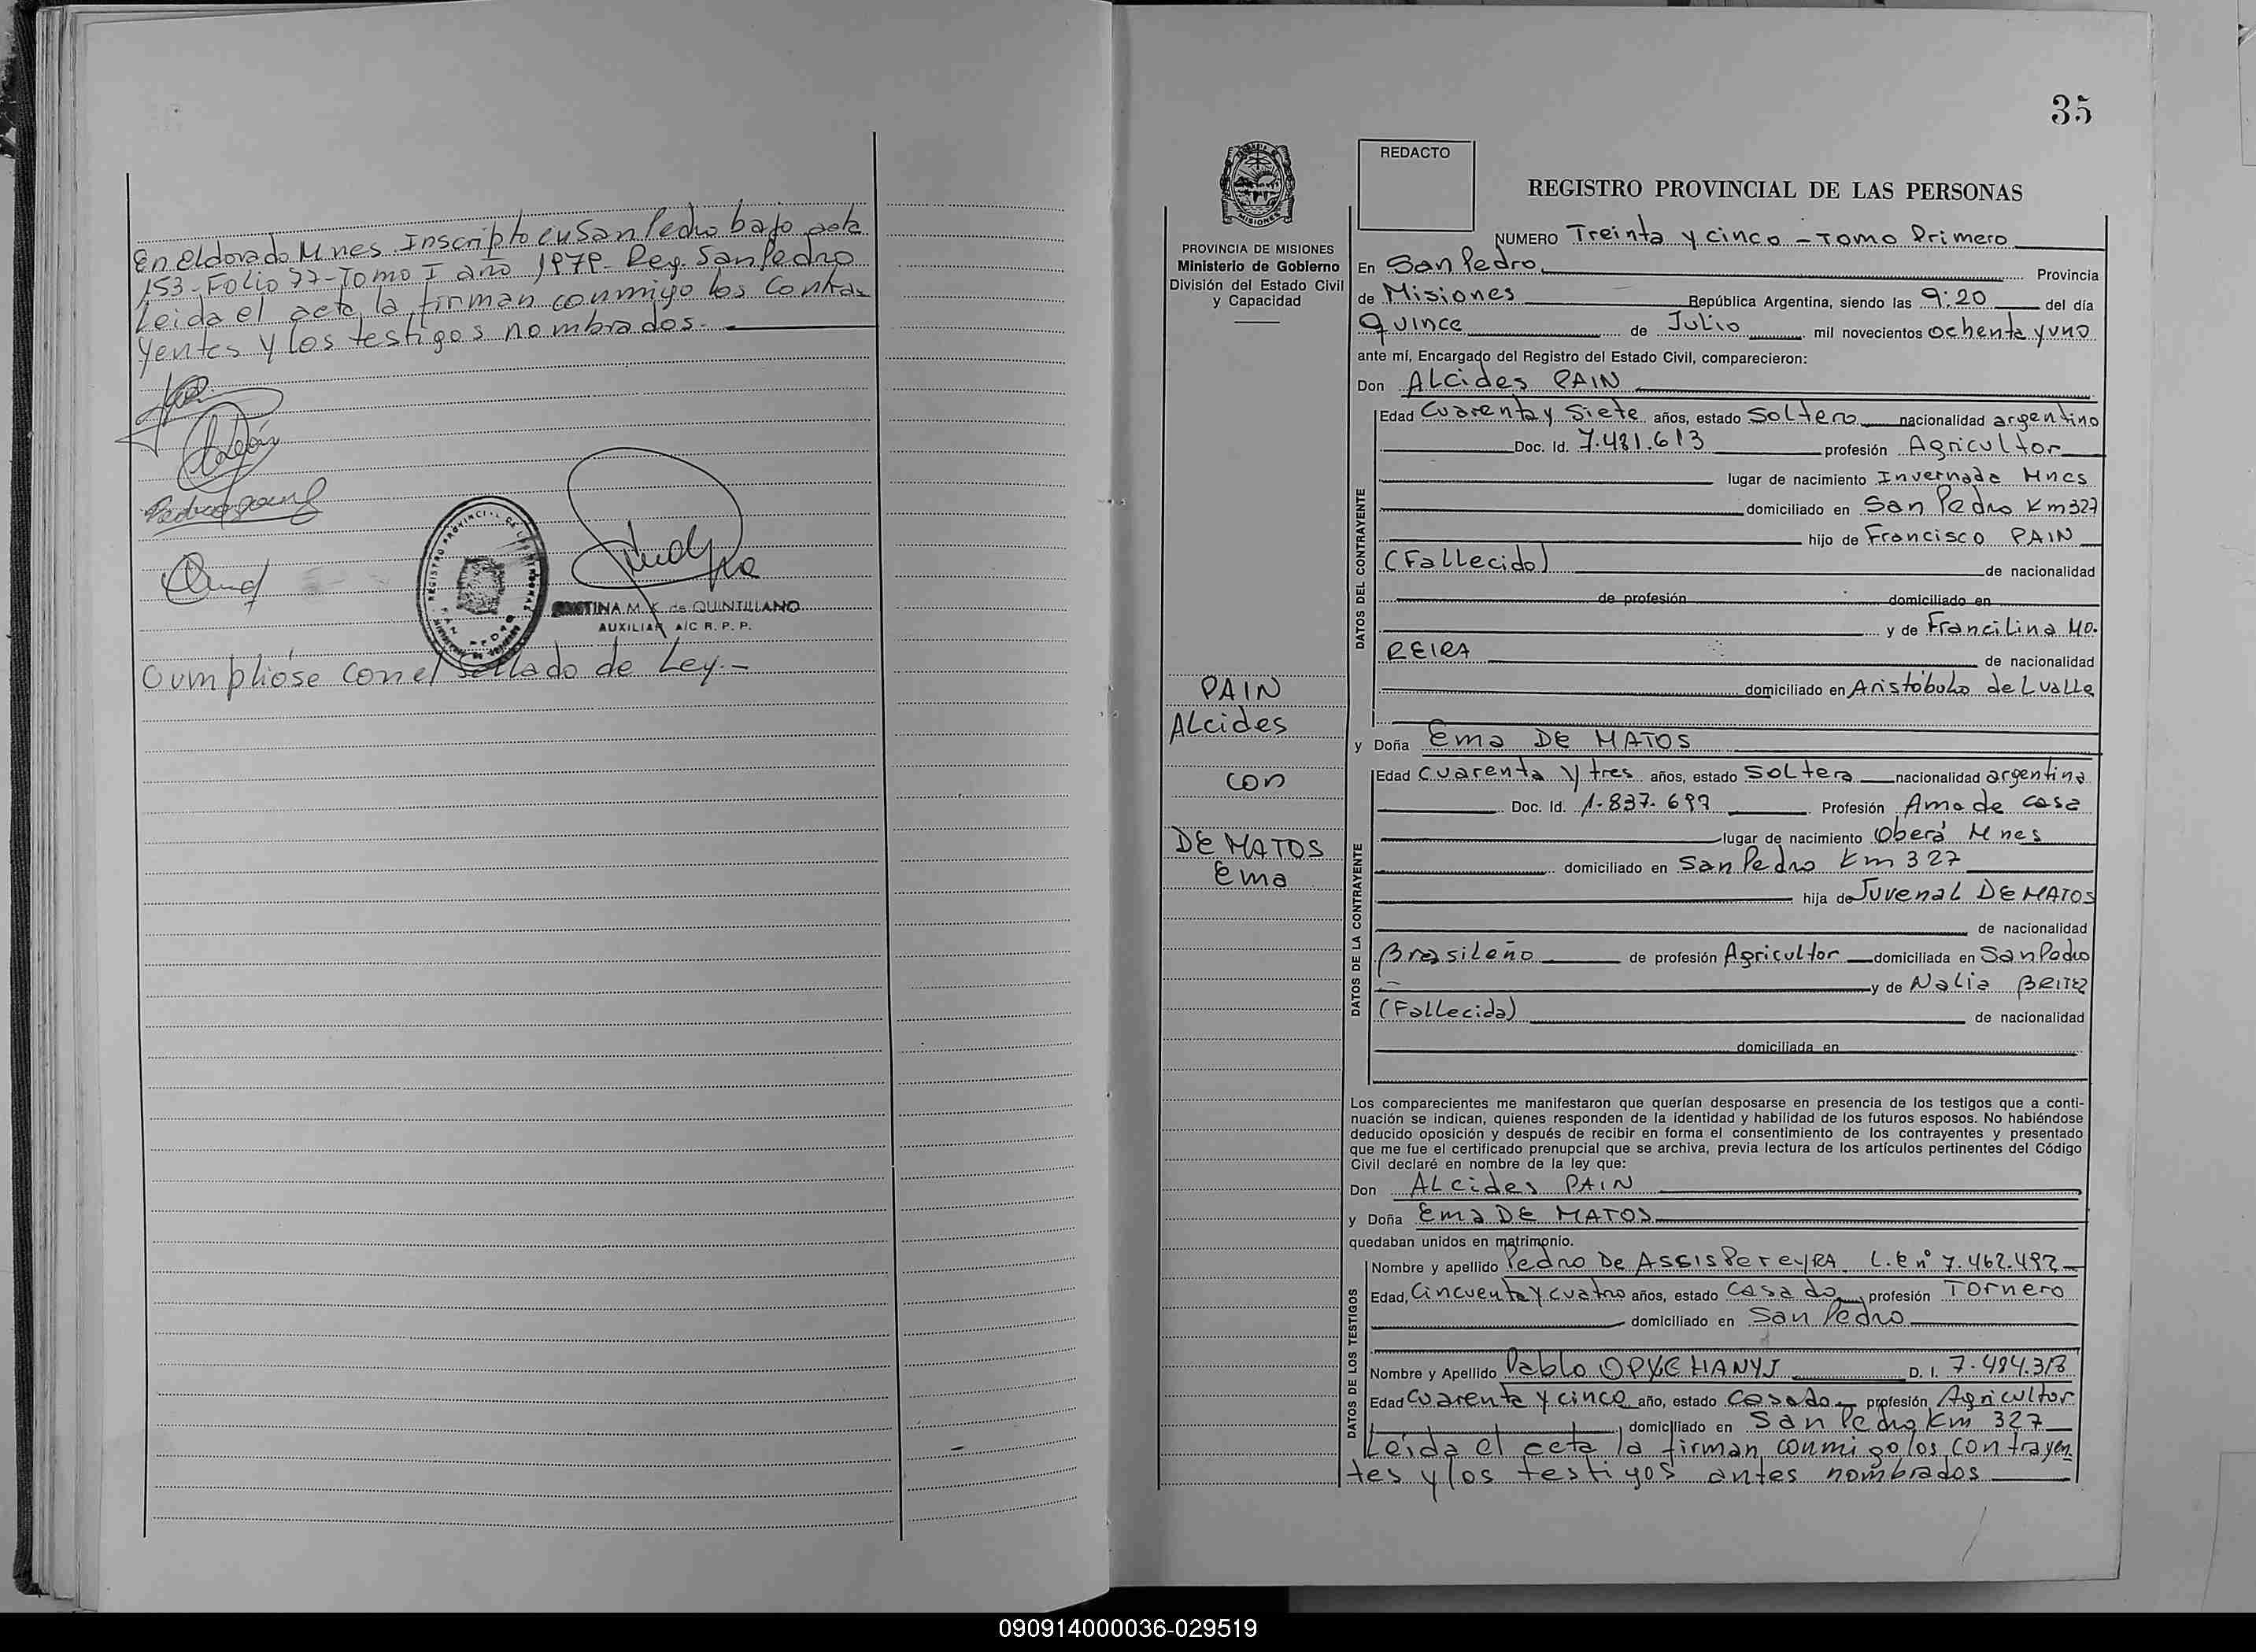 En eldorado Mnes. Inscripto en San Pedro bajo acta
153-Folio 77-Tomo I año 1979- Reg. San Pedro
Leida el acta, la firman conmigo los Contra-
yentes y los testigos nombrados.-
REGISTRO PROVINCIAL DE LAS PERSONAS
SAN PEDRO
M. K. de QUINTILLANO
AUXILIAR A/C R. P. P.
Cumplióse con el sellado de Ley.-
35
REDACTO
REGISTRO PROVINCIAL DE LAS PERSONAS
PROVINCIA DE MISIONES
Ministerio de Gobierno
División del Estado Civil
y Capacidad
PAIN
ALcides
con
DE MATOS
Ema
NUMERO Treinta y cinco - Tomo Primero
En San Pedro Provincia
de Misiones República Argentina, siendo las 9:20 del día
Quince de Julio mil novecientos ochenta y uno
ante mí, Encargado del Registro del Estado Civil, comparecieron:
Don ALcides PAIN
DATOS DEL CONTRAYENTE
Edad Cuarenta y Siete años, estado Soltero nacionalidad argentino
Doc. Id. 7.481.613 profesión Agricultor
lugar de nacimiento Invernada Mnes
domiciliado en San Pedro Km 327
hijo de Francisco PAIN
(Fallecido) de nacionalidad
de profesión domiciliado en
y de Francilina MO-
REIRA de nacionalidad
domiciliado en Aristóbulo del Valle
y Doña Ema DE MATOS
DATOS DE LA CONTRAYENTE
Edad cuarenta y tres años, estado Soltera nacionalidad argentina
Doc. Id. 1.837.699 Profesión Ama de casa
lugar de nacimiento Oberá Mnes
domiciliado en San Pedro Km 327
hija de Juvenal DE MATOS
de nacionalidad
Brasileño de profesión Agricultor domiciliada en San Pedro
y de Nalia BEITEZ
(Fallecida) de nacionalidad
domiciliada en
Los comparecientes me manifestaron que querían desposarse en presencia de los testigos que a conti-
nuación se indican, quienes responden de la identidad y habilidad de los futuros esposos. No habiéndose
deducido oposición y después de recibir en forma el consentimiento de los contrayentes y presentado
que me fue el certificado prenupcial que se archiva, previa lectura de los artículos pertinentes del Código
Civil declaré en nombre de la ley que:
Don ALcides PAIN
y Doña Ema DE MATOS
quedaban unidos en matrimonio.
DATOS DE LOS TESTIGOS
Nombre y apellido Pedro De ASSIS PereyRA L.E nº 7.462.492
Edad, Cincuenta y cuatro años, estado casado profesión Tornero
domiciliado en San Pedro
Nombre y Apellido Pablo OPYCHANYJ D. I. 7.484.318
Edad cuarenta y cinco año, estado casado profesión Agricultor
domiciliado en San Pedro Km 327
Leida el ceta la firman conmigo los contrayen
tes y los testigos antes nombrados
090914000036-029519